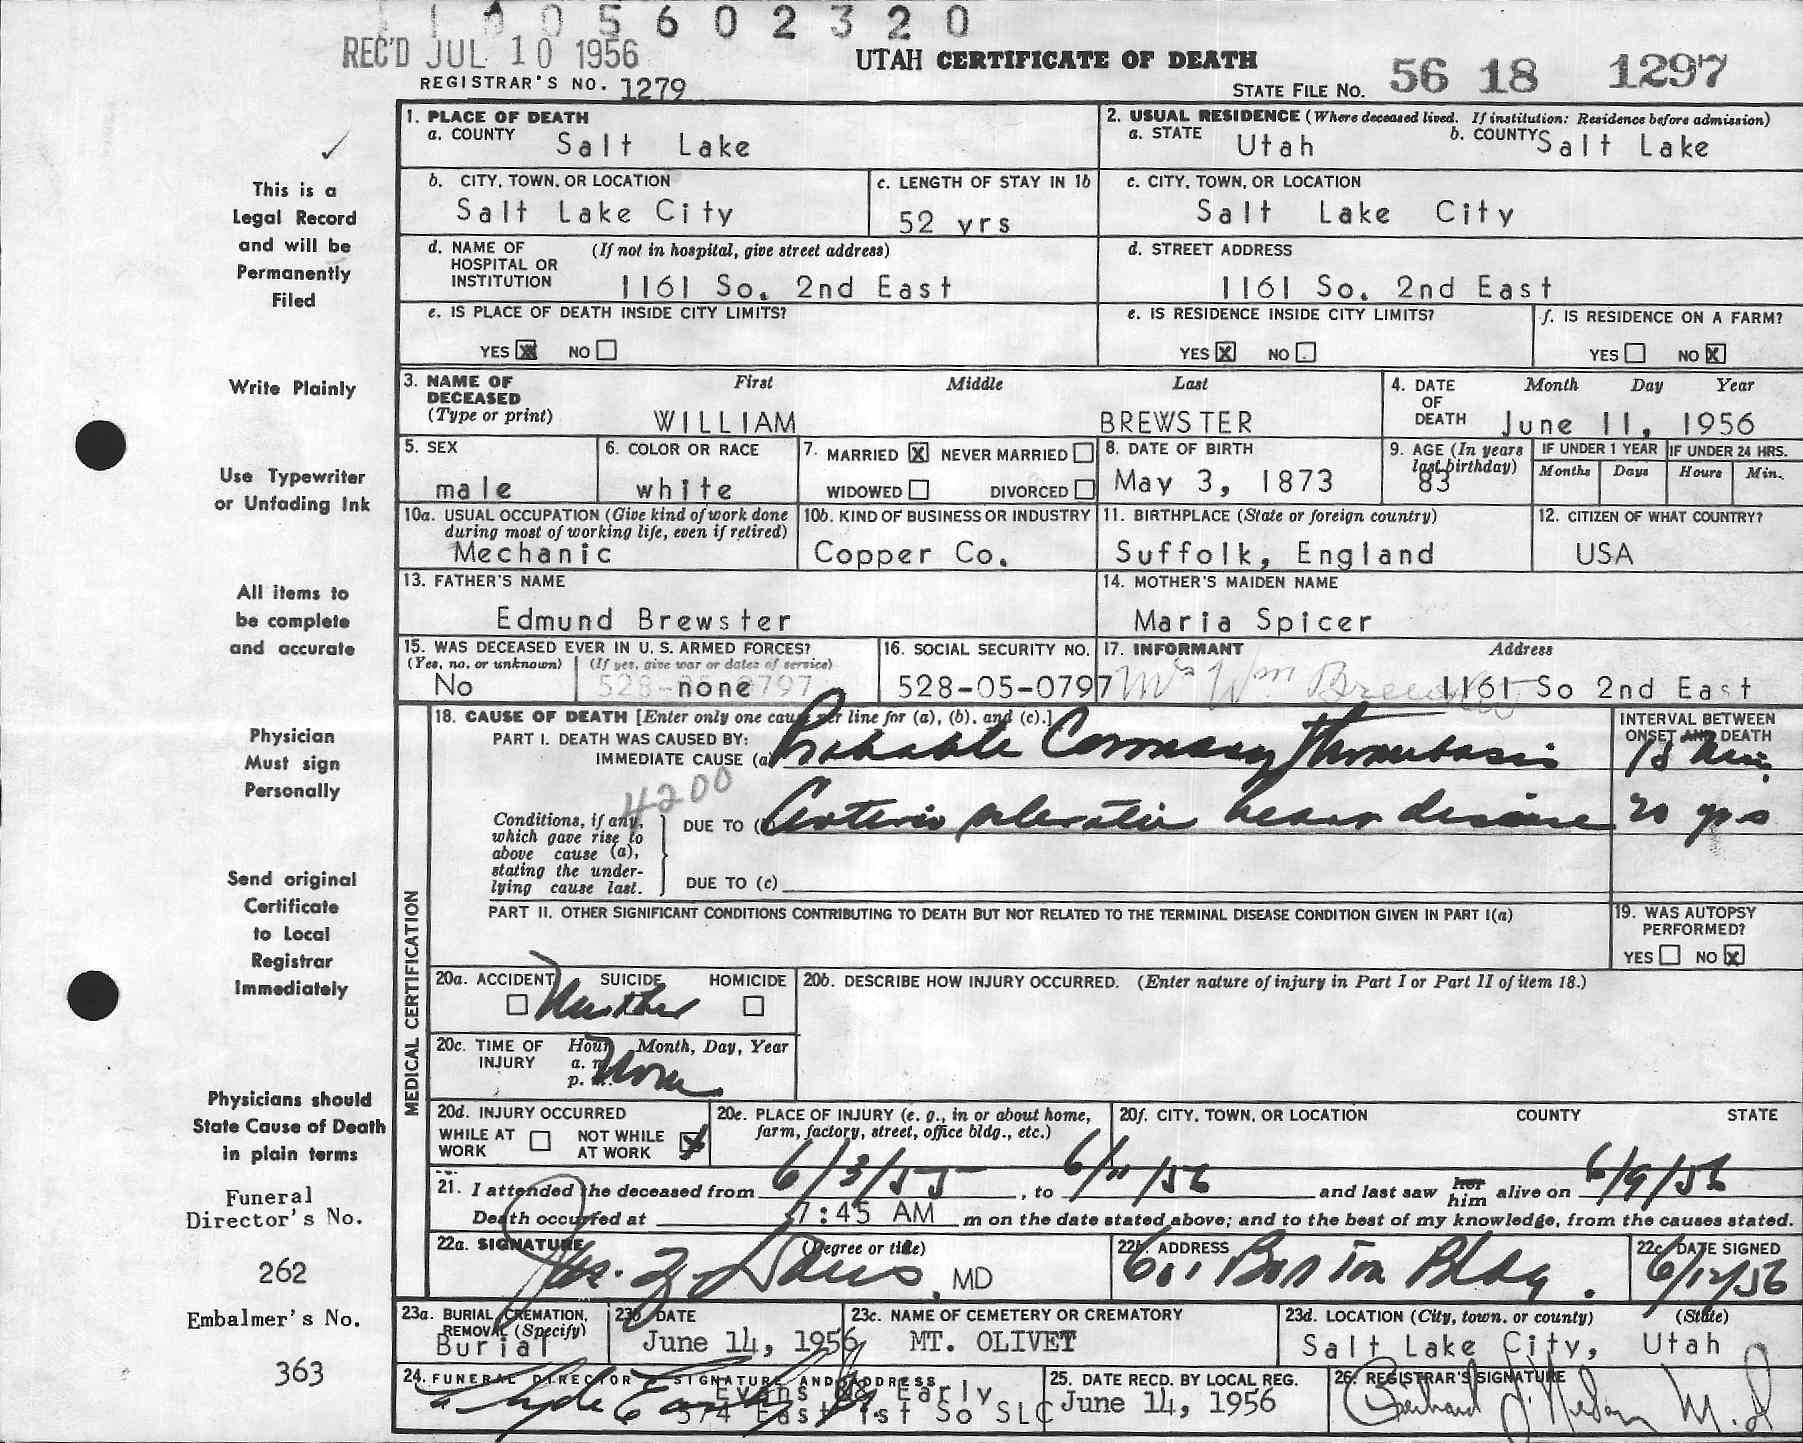 1 1 0 0 5 6 0 2 3 2 0
REC'D JUL 10 1956
UTAH CERTIFICATE OF DEATH
REGISTRAR'S NO. 1279
STATE FILE NO. 56 18 1297
1. PLACE OF DEATH
a. COUNTY Salt Lake
2. USUAL RESIDENCE (Where deceased lived. If institution: Residence before admission)
a. STATE Utah b. COUNTY Salt Lake
b. CITY, TOWN, OR LOCATION
Salt Lake City
c. LENGTH OF STAY IN 1b
52 yrs
c. CITY, TOWN, OR LOCATION
Salt Lake City
d. NAME OF HOSPITAL OR INSTITUTION (If not in hospital, give street address)
1161 So. 2nd East
d. STREET ADDRESS
1161 So. 2nd East
e. IS PLACE OF DEATH INSIDE CITY LIMITS?
YES X NO
e. IS RESIDENCE INSIDE CITY LIMITS?
YES X NO
f. IS RESIDENCE ON A FARM?
YES NO X
3. NAME OF DECEASED (Type or print)
First Middle Last
WILLIAM BREWSTER
4. DATE OF DEATH
Month Day Year
June 11, 1956
5. SEX
male
6. COLOR OR RACE
white
7. MARRIED X NEVER MARRIED
WIDOWED DIVORCED
8. DATE OF BIRTH
May 3, 1873
9. AGE (In years last birthday)
83
IF UNDER 1 YEAR
Months Days
IF UNDER 24 HRS.
Hours Min.
10a. USUAL OCCUPATION (Give kind of work done during most of working life, even if retired)
Mechanic
10b. KIND OF BUSINESS OR INDUSTRY
Copper Co.
11. BIRTHPLACE (State or foreign country)
Suffolk, England
12. CITIZEN OF WHAT COUNTRY?
USA
13. FATHER'S NAME
Edmund Brewster
14. MOTHER'S MAIDEN NAME
Maria Spicer
15. WAS DECEASED EVER IN U. S. ARMED FORCES?
(Yes, no. or unknown) (If yes, give war or dates of service)
No none
16. SOCIAL SECURITY NO.
528-05-0797
17. INFORMANT Address
Mrs Wm Brewster 1161 So 2nd East
MEDICAL CERTIFICATION
18. CAUSE OF DEATH [Enter only one cause per line for (a), (b), and (c).]
INTERVAL BETWEEN ONSET AND DEATH
PART I. DEATH WAS CAUSED BY:
IMMEDIATE CAUSE (a) Probable Coronary Thrombosis 15 min.
4200
Conditions, if any, which gave rise to above cause (a), stating the underlying cause last.
DUE TO (b) Arterio sclerotic heart disease 20 yrs
DUE TO (c)
PART II. OTHER SIGNIFICANT CONDITIONS CONTRIBUTING TO DEATH BUT NOT RELATED TO THE TERMINAL DISEASE CONDITION GIVEN IN PART I(a)
19. WAS AUTOPSY PERFORMED?
YES NO X
20a. ACCIDENT SUICIDE HOMICIDE
Neither
20b. DESCRIBE HOW INJURY OCCURRED. (Enter nature of injury in Part I or Part II of item 18.)
20c. TIME OF INJURY Hour Month, Day, Year
a. m.
p. m.
None
20d. INJURY OCCURRED
WHILE AT WORK NOT WHILE AT WORK X
20e. PLACE OF INJURY (e. g., in or about home, farm, factory, street, office bldg., etc.)
20f. CITY, TOWN, OR LOCATION COUNTY STATE
21. I attended the deceased from 6/3/55, to 6/11/56 and last saw her him alive on 6/9/56
Death occurred at 7:45 AM m on the date stated above; and to the best of my knowledge, from the causes stated.
22a. SIGNATURE (Degree or title)
MD
22b. ADDRESS
601 Boston Bldg.
22c. DATE SIGNED
6/12/56
23a. BURIAL, CREMATION, REMOVAL (Specify)
Burial
23b. DATE
June 14, 1956
23c. NAME OF CEMETERY OR CREMATORY
MT. OLIVET
23d. LOCATION (City, town. or county) (State)
Salt Lake City, Utah
24. FUNERAL DIRECTOR'S SIGNATURE AND ADDRESS
Evans & Early
574 East 1st So SLC
25. DATE RECD. BY LOCAL REG.
June 14, 1956
26. REGISTRAR'S SIGNATURE
M.D
This is a
Legal Record
and will be
Permanently
Filed
Write Plainly
Use Typewriter
or Unfading Ink
All items to
be complete
and accurate
Physician
Must sign
Personally
Send original
Certificate
to Local
Registrar
Immediately
Physicians should
State Cause of Death
in plain terms
Funeral
Director's No.
262
Embalmer's No.
363